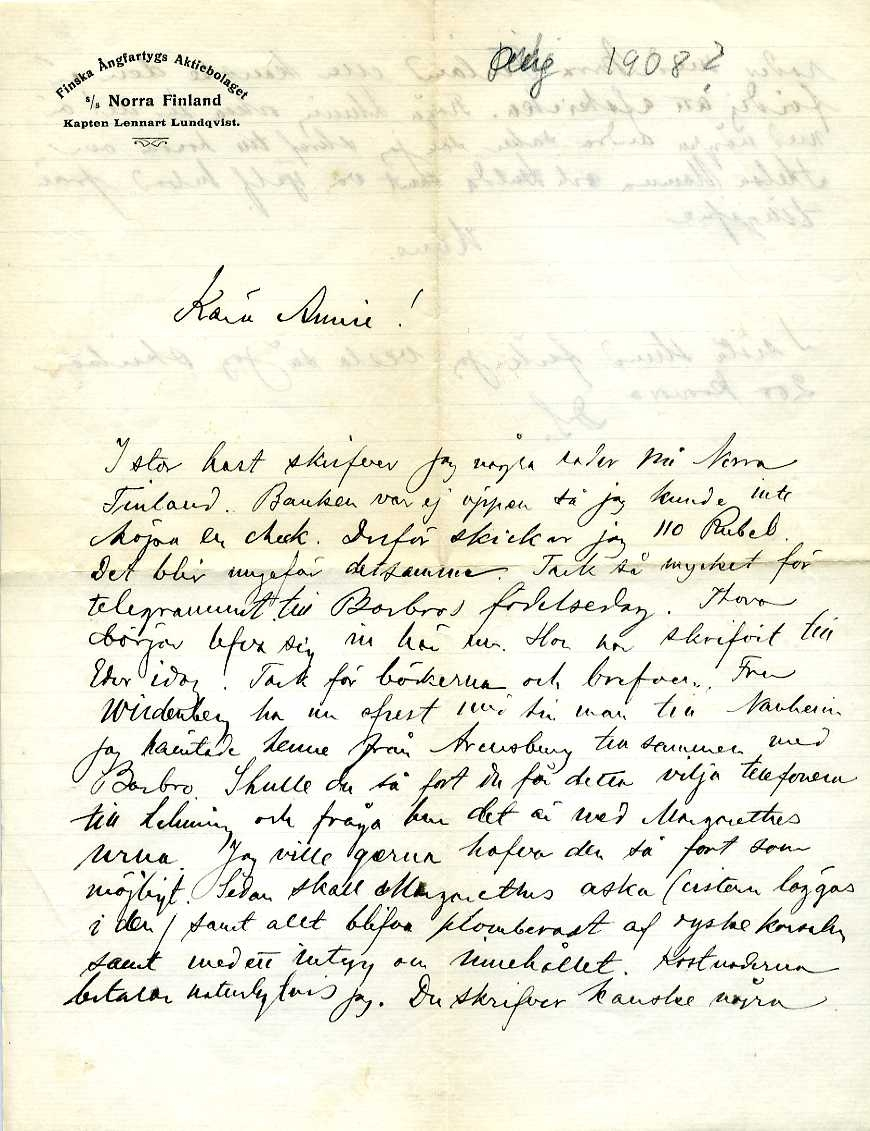 Finska Ångfartygs Aktiebolaget
s/s Norra Finland
Kapten Lennart Lundqvist.
1908 ?
Kära Annie !
I stor hast skrifver jag några rader på Norra
Finland. Banken var ej öppen så jag kunde inte
köpa en check. Derför skickar jag 110 Rubel.
Det blir ungefär detsamma. Tack så mycket för
telegrammet till Barbros födelsedag. Thora
börjar lefva sig in här nu. Hon har skrifvit till
Eder idag. Tack för böckerna och brefven. Fru
Wirdenberg ha nu afrest med sin man till Nauheim
jag hämtade henne från Arensburg tillsammen med
Barbro. Skulle du så fort du får detta vilja telefonera
till och fråga hur det är med Margarethes
urna. Jag ville gærna hafva den så fort som
möjligt. Sedan skall Margarethes aska (cistern läggas
i den) samt allt blifva plomberadt af ryske konsuln
samt med ett intyg om innehållet. Kostnaderna
betalar naturligtvis jag. Du skrifver kanske några